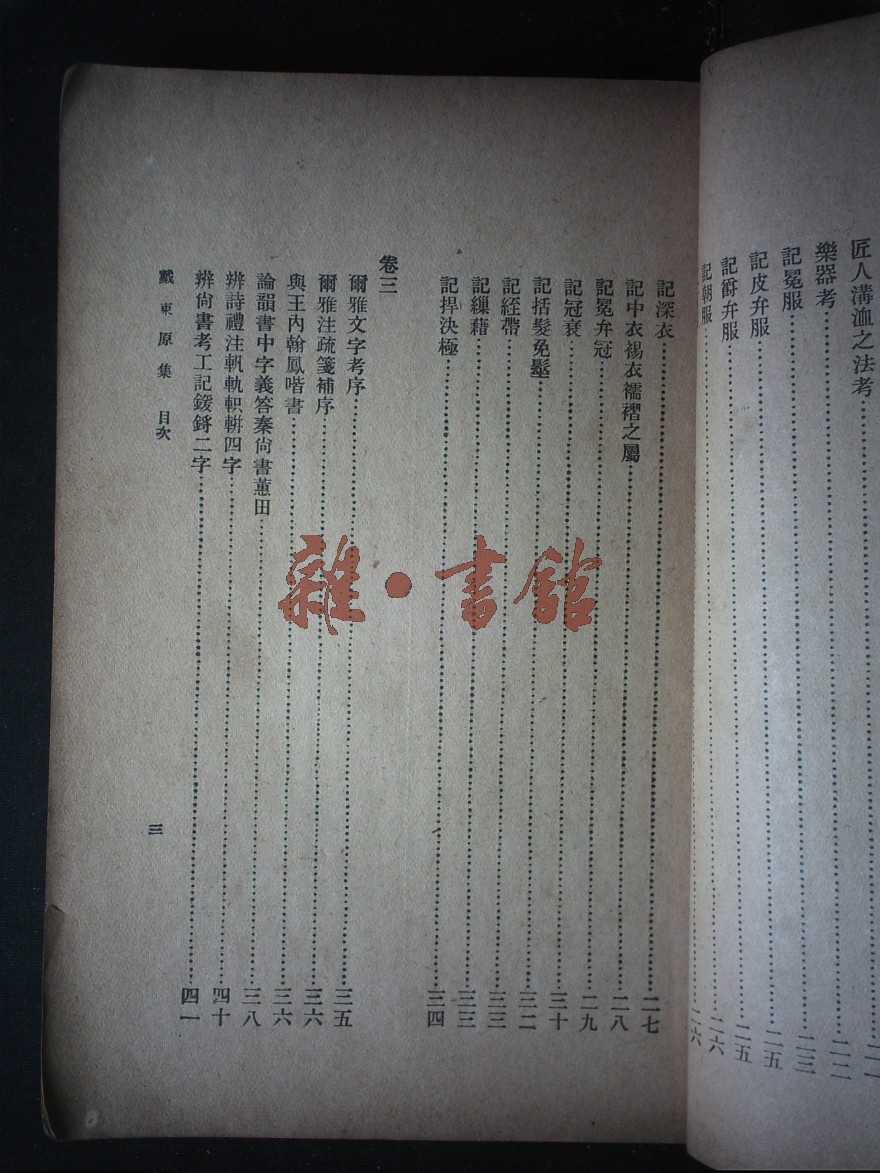 匠人溝洫之法考……二一
樂器考……二二
記冕服……二三
記皮弁服……二五
記爵弁服……二六
記朝服……二六
記深衣……二七
記中衣裼衣襦褶之屬……二八
記冕弁冠……二九
記冠衰……三十
記括髮免髽……三二
記絰帶……三三
記繅藉……三三
記捍決極……三四
卷三
爾雅文字考序……三五
爾雅注疏箋補序……三六
與王內翰鳳喈書……三六
論韻書中字義答秦尙書蕙田……三八
辨詩禮注軓軌軹軿四字……四十
辨尙書考工記鍰鋝二字……四一
戴東原集 目次
三
雜·書館